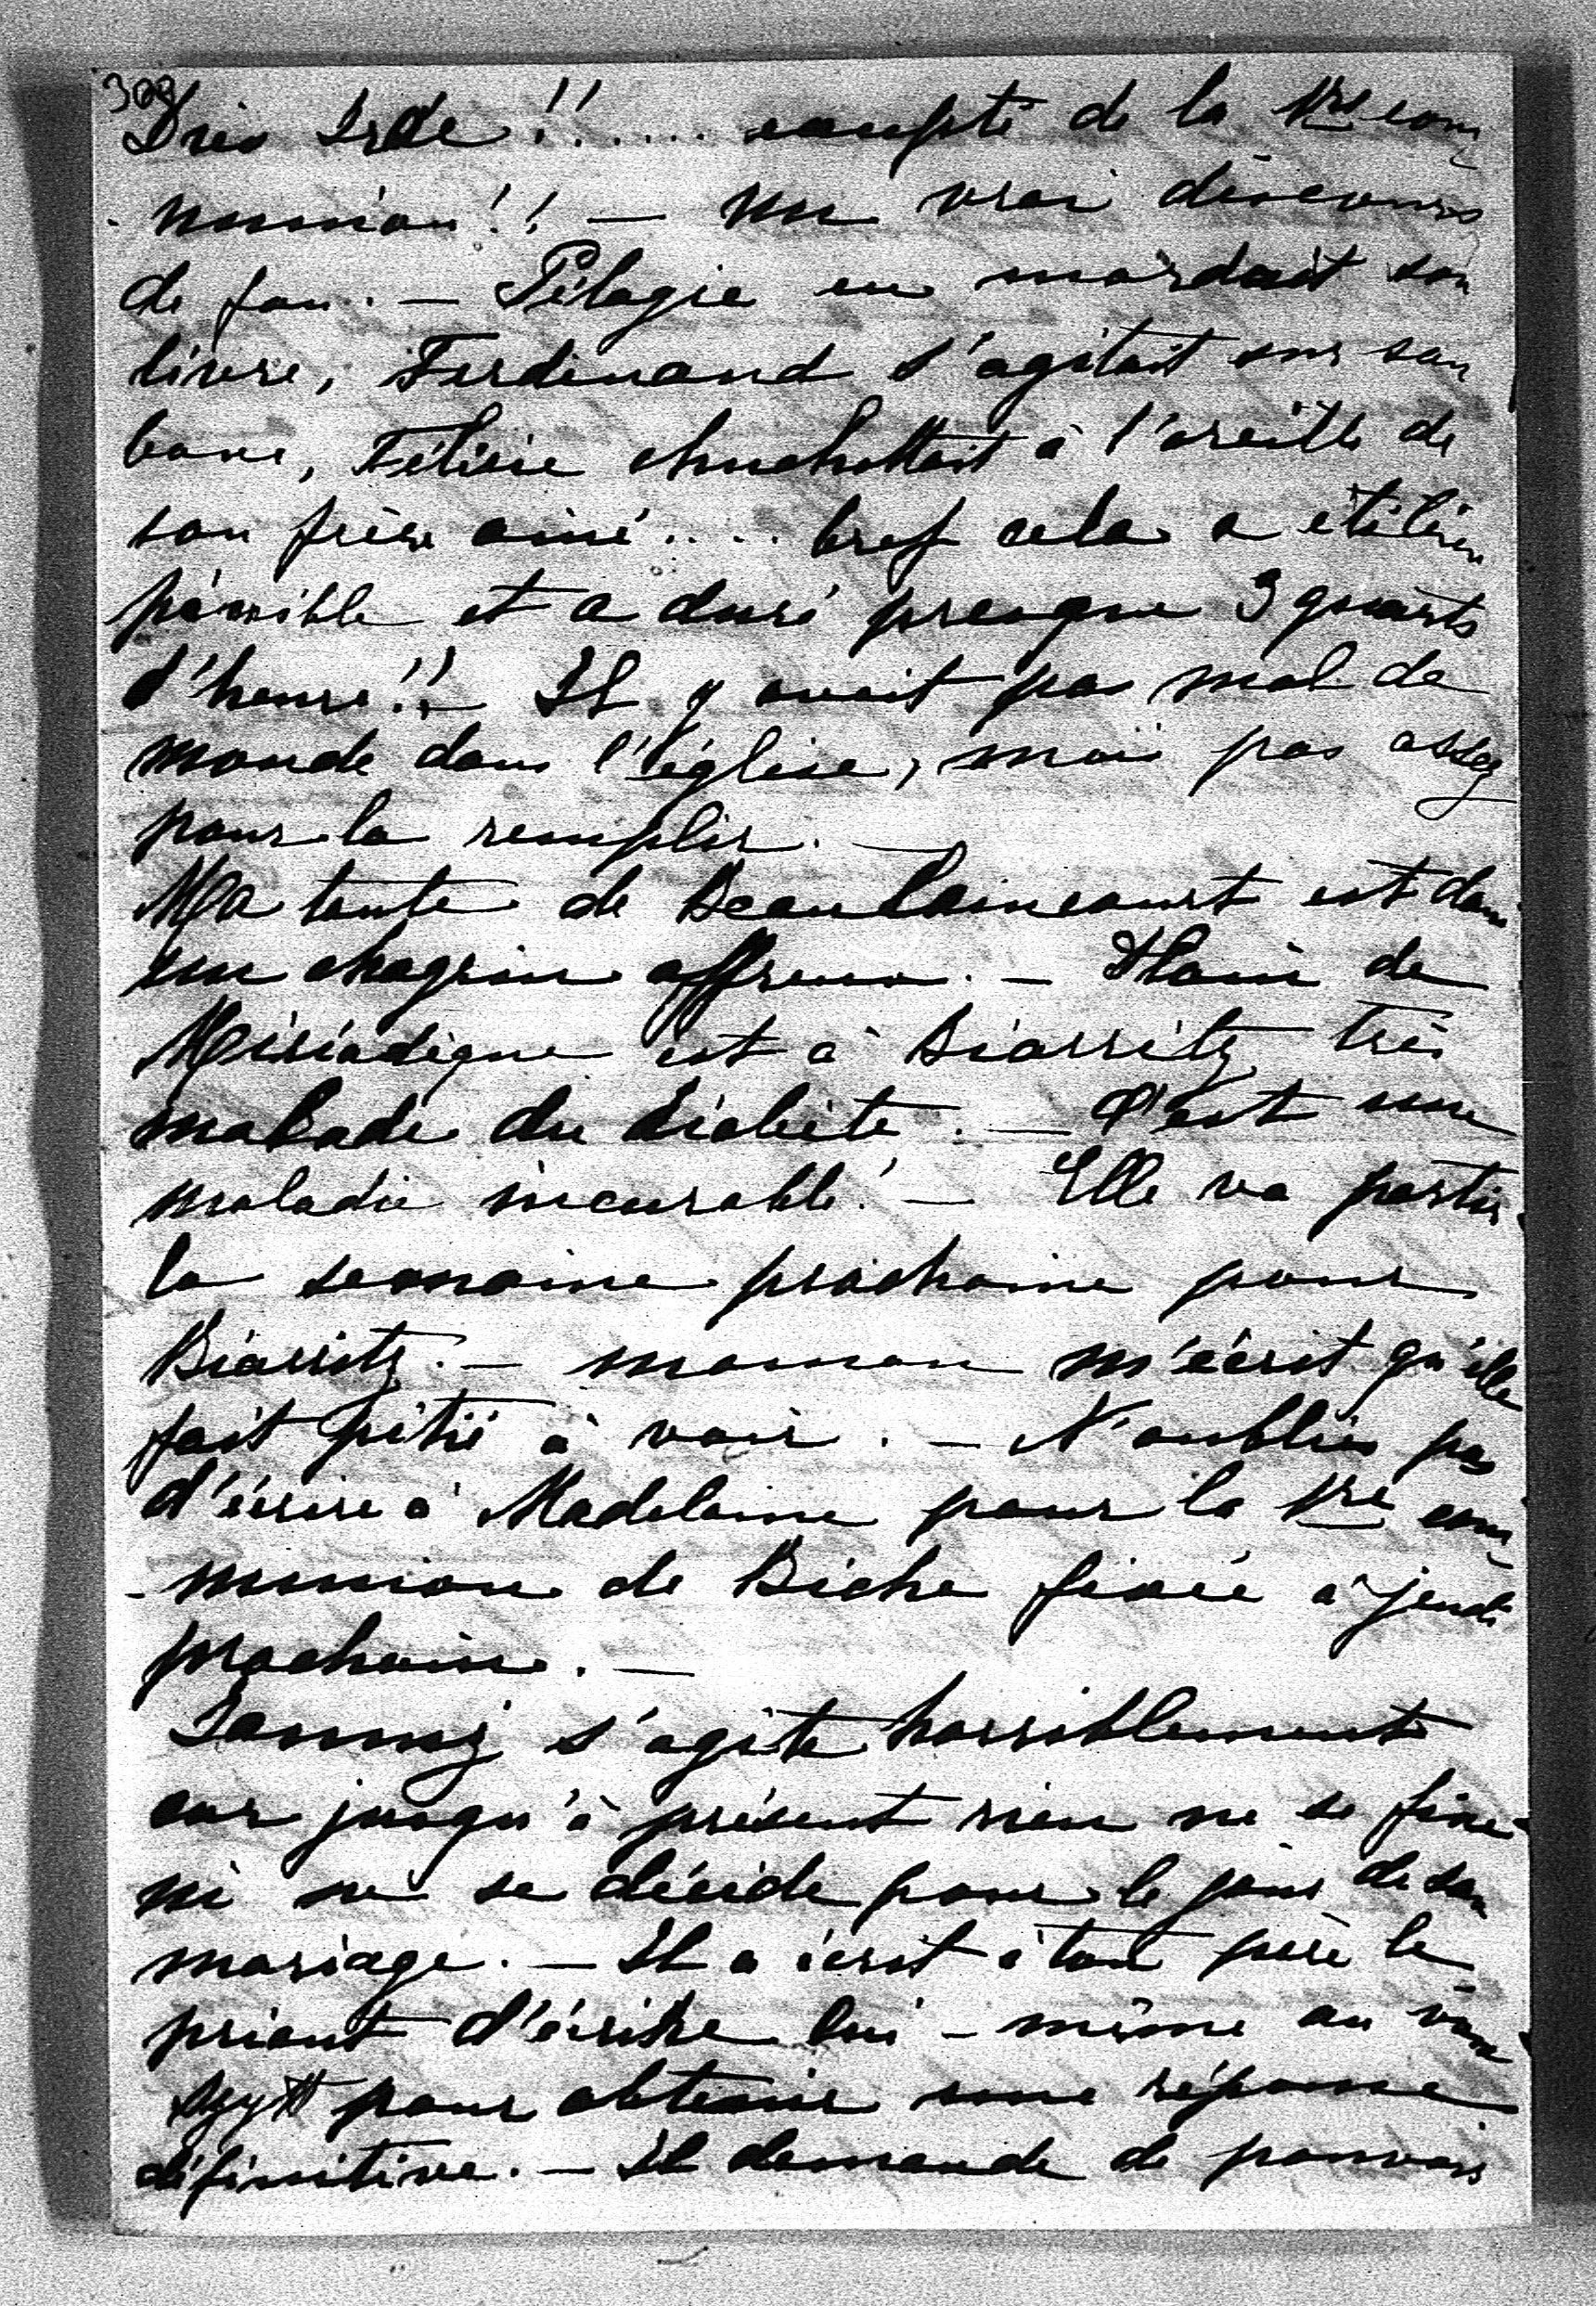 309
compté de la 1re com
-munion!! — un vrai discours
de fou. — Pélagie en mordait son
livre, Ferdinand s'agitait sur son
banc, Félicie chuchottait à l'oreille de
son frère ainé.... bref cela a été bien
pénible et a duré presque 3 quarts
d'heure!! — Il y avait pas mal de
monde dans l'église, mais pas assez
pour la remplir. —
Ma tante de Beaulaincourt est dans
un chagrin affreux. — Alain de
Mériadègue est à Biarritz très
malade du diabète. — C'est une
maladie incurable! — Elle va partir
la semaine prochaine pour
Biarritz. — maman m'écrit qu'elle
fait pitié à voir. — N'oublies pas
d'écrire à Madeleine pour la 1re com
-munion de Biche fixée à jeudi
prochain. —
s'agite horriblement
car jusqu'à présent rien ne se fixe
ni ne se décide pour le jour de son
mariage. — Il a écrit à ton père le
priant d'écrire lui-même au
pour obtenir une réponse
définitive. — Il demande de pouvoir